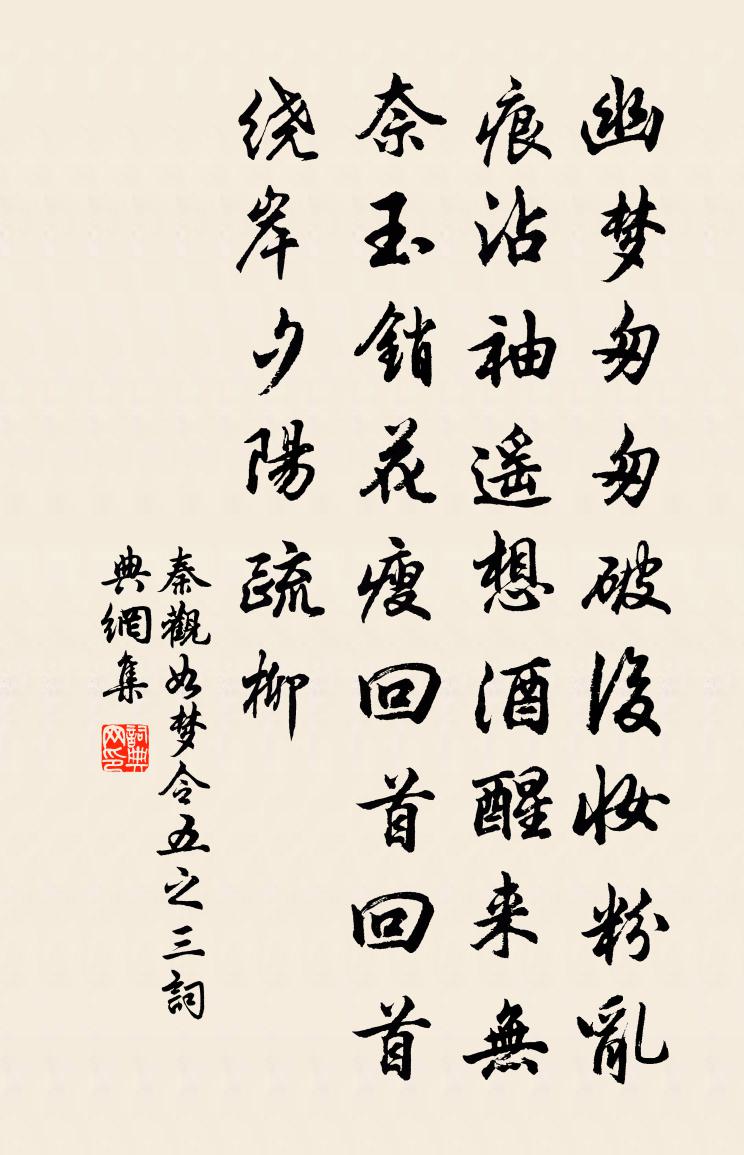 幽梦匆匆破後妆粉亂
痕沾袖遥想酒醒来無
奈玉銷花瘦回首回首
绕岸夕陽疏柳
秦觀如梦令五之三詞
典網集
詞典网印